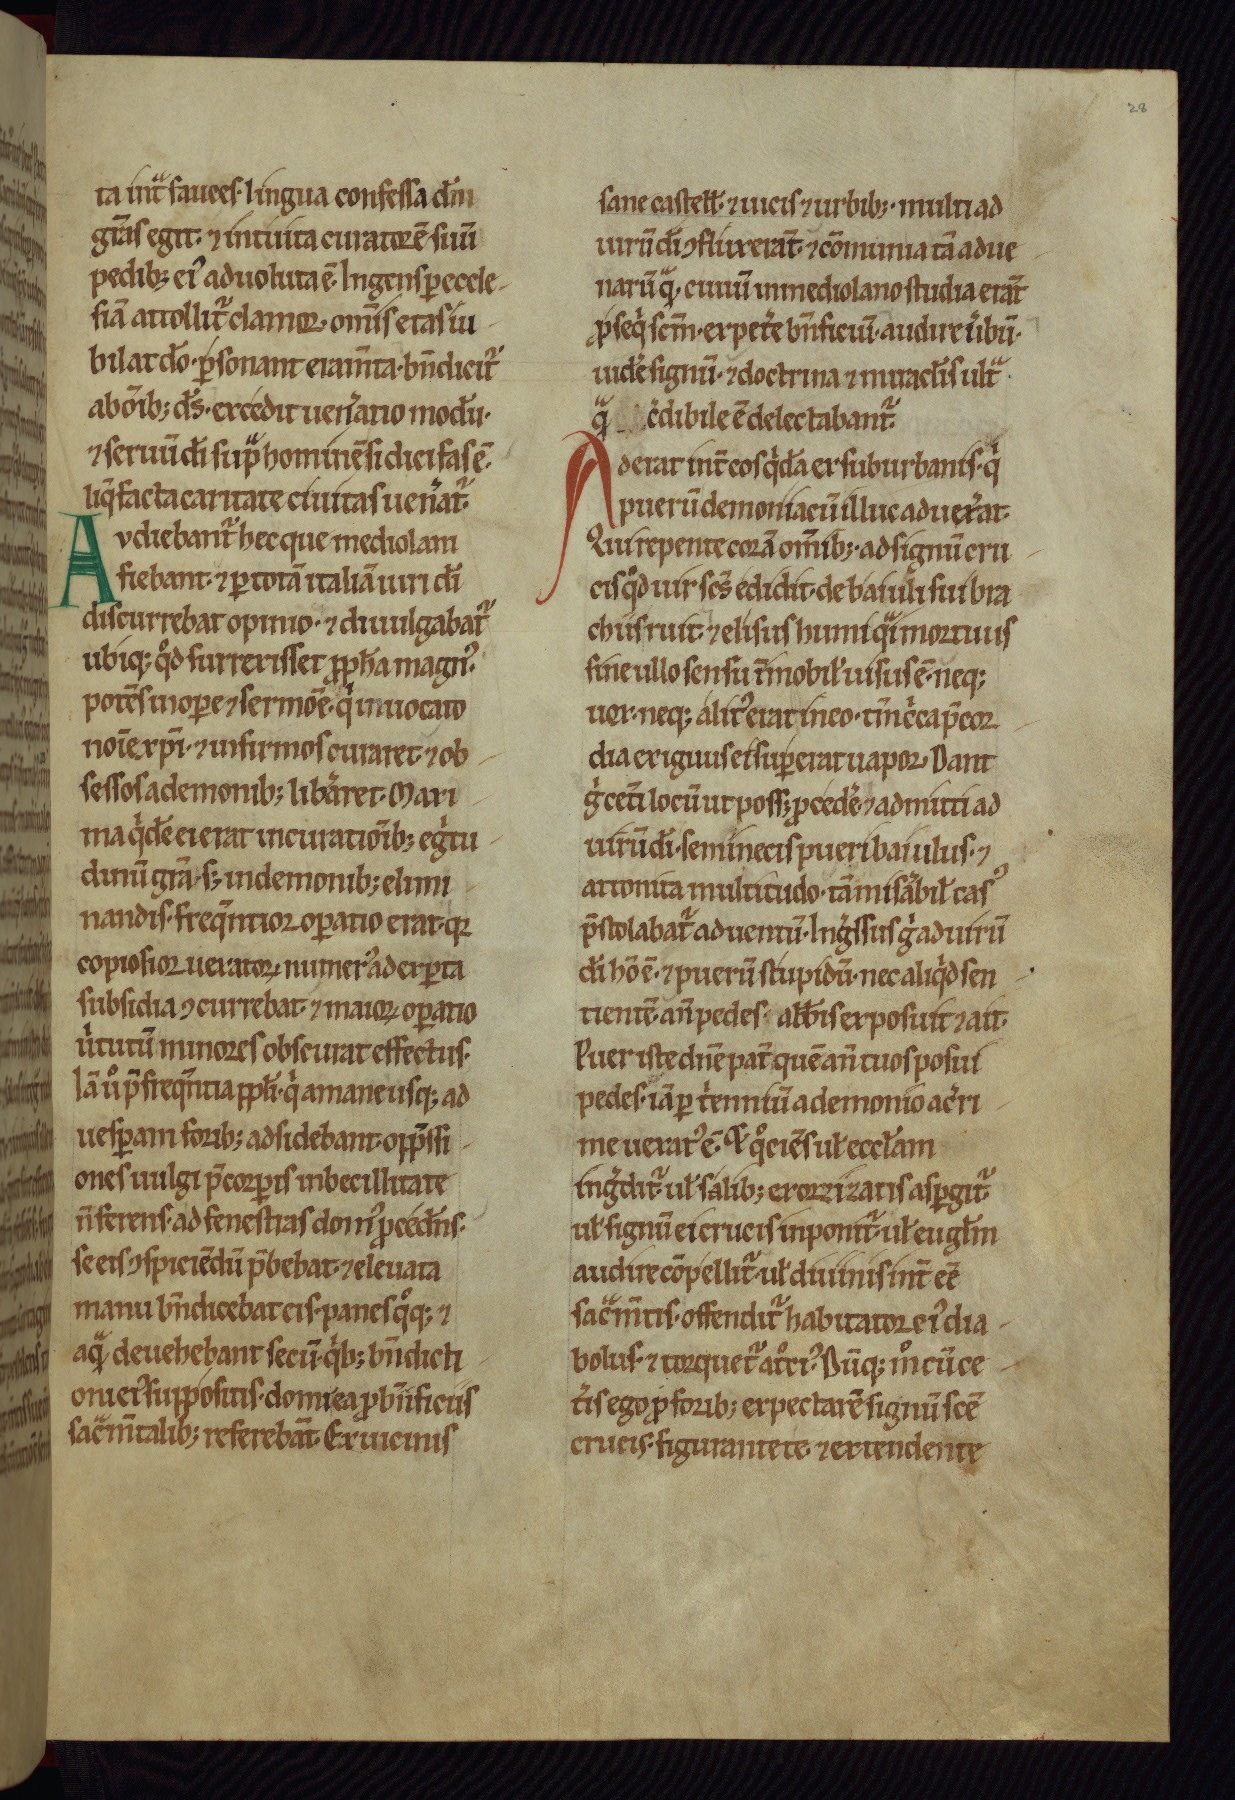 28
ta int̄ fauces· lingua confessa dm̄
grās egit· ⁊ intuita curatorē suū
pedib; ei⁹ aduoluta ē· Ingens p̱ eccle-
siā attollit᷑ clamor· om̄is etas iu-
bilat dō· p̱sonant eram̄ta· bn̄dicit᷑
ab oīb; ds̄· excedit uen̄atio modū·
⁊ seruū dī sup̄ hominē si dici fas ē·
liq̄facta caritate ciuitas uen̄at᷑·
Avdiebant᷑ hec que mediolani
fiebant· ⁊ p̱ totā italiā uiri dī
discurrebat opinio· ⁊ diuulgabat᷑
ubiq; qd̄ surrexisset ꝓph̄a magn⁹
potēs in ope̱ ⁊ sermōe· qͥ inuocato
noīe xp̄i· ⁊ infirmos curaret· ⁊ ob-
sessos a demonib; lib̄aret· Maxi-
ma qͥdē ei erat in curatiōib; egͥtu-
dinū grā· s; in demonib; elimi-
nandis· freq̄ntior op̱atio erat· qꝛ
copiosior uexatoꝝ numer⁹ ad exp̱ta
subsidia ꝯcurrebat· ⁊ maioꝝ op̱atio
uͥtutū minores obscurat effectus·
Iā ūo p̄ freq̄ntia ppl̄i· qͥ a mane usq; ad
uesp̱am forib; adsidebant· opp̄ssi-
ones uulgi p̄ corp̱is inbecillitate
n̄ ferens· ad fenestras dom⁹ ꝓcedēns·
se eis ꝯspiciēdū p̄bebat· ⁊ eleuata
manu bn̄dicebat eis· panes qͦq; ⁊
aqͣ deuehebant secū· qͥb; bn̄dicti-
oni ei⁹ suppositis· domi ea ꝓ bn̄ficiis
sac̄m̄talib; referebāt· Ex uicinis
sane castell̄· ⁊ uicis ⁊ urbib;· multi ad
uirū dī ꝯfluxerāt· ⁊ cōmunia tā adue-
narū qͣ ciuiū in mediolano studia erāt
ꝓseqͥ scm̄· expet̄e bn̄ficiū· audire ūbū·
uidē signū· ⁊ doctrina ⁊ miraclīs ult̄ͣ
qͣ c̄dibile ē delectabant᷑·
Aderat int̄ eos qͥdā ex suburbanis· qͥ
puerū demoniacū illuc aduex̄at·
Qui repente corā om̄ib;· ad signū cru-
cis qd̄ uir scs̄ edidit· de baiuli sui bra-
chiis ruit· ⁊ elisus humi qͣi mortuus
sine ullo sensu īmobil̄ uisus ē· neq;
uox· neq; alit⁹ erat in eo· tm̄ cͥca p̄cor-
dia exiguus ei sup̱erat uapor· Dant
gͥ cet̄i locū ut poss; ꝓcedē· ⁊ admitti ad
uirū dī· seminecis pueri baiulus· ⁊
attonita multitudo· tā misābil̄ cas⁹
p̄stolabat᷑ aduentū· Ingͣssus gͥ ad uirū
dī hō ē· ⁊ puerū stupidū· nec aliqͥd sen-
tientē· an̄ pedes abb̄is exposuit ⁊ ait·
Puer iste dn̄e pat̄ quē an̄ tuos posui
pedes· iā p̱ tͥenniū a demonio acͥri-
me uexat⁹ ē· Et qͦciēs ul̄ eccl̄am
ingͣdit᷑ ul̄ salib; exorzizatis asp̱git᷑
ul̄ signū ei crucis inponit᷑ ul̄ eugl̄m
audire cōpellit᷑· ul̄ diuinis int̄ eē
sac̄m̄tis· offendit᷑ habitator ei⁹ dia-
bolus· ⁊ torquet᷑ at̄ri⁹· Dūq; mͦ cū ce-
t̄is ego ꝓ forib; expectarē signū scē
crucis· figurante te· ⁊ extendente